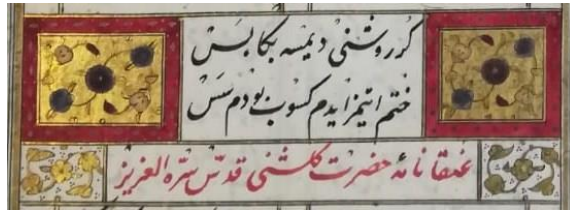 كر روشنى ديمسه بكا بس
ختم ايتمز ايدم كسوب بو دم سس
عنقا نامۀ حضرت كلشنى قدّس سرّه العزيز